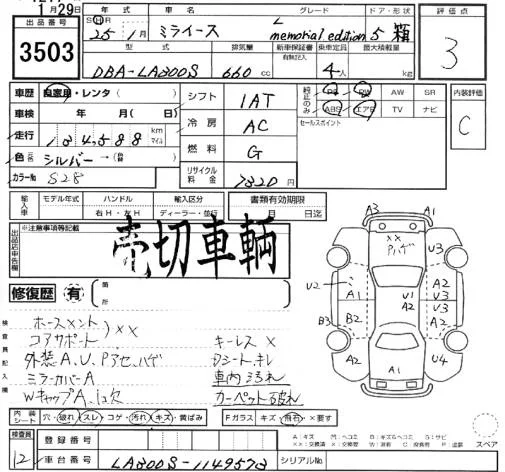 1月29日
出品番号
3503
年式 車名 グレード ドア・形状
SH R 25年 1月 ミライース L memorial edition 5 箱
型式 排気量 新車保証書 乗車定員 最大積載量
有無記入
DBA-LA300S 660 cc 4人 kg
評価点
3
車歴 自家用・レンタ( )
車検 年 月( 日)
走行 134,588 km マイル
色 (元色) シルバー→(替)
カラーNo S28
シフト 1AT
冷房 AC
燃料 G
リサイクル料金 7320円
純正のみ PS PW AW SR
ABS エアB TV ナビ
セールスポイント
内装評価
C
輸入車 モデル年式 ハンドル 輸入区分 書類有効期限
右H・左H ディーラー・並行 月 日迄
出品店申告欄
※注意事項等記載
売切車輌
修復歴 有 箇所
検査員記入欄
ホースメント ××
コアサポート
外装A.U.Pアセ.ハゲ
ミラーカバーA
WキャップA.1欠
キーレス×
Dシートキレ
車内汚れ
カーペット破れ
A3 A1
×× Pハゲ U3
U2 A1 U1 A2 A2 U3
B3 B2 A2
A2 A1 U4
内装シート 穴・破れ・スレ・コゲ・汚れ・キズ・黄ばみ Fガラス キズ・飛石・×要す
A:キズ M:ヘコミ B:キズ&ヘコミ S:サビ
スペア
検査員
12
登録番号
車台番号 LA300S-1149573 シリアルNo